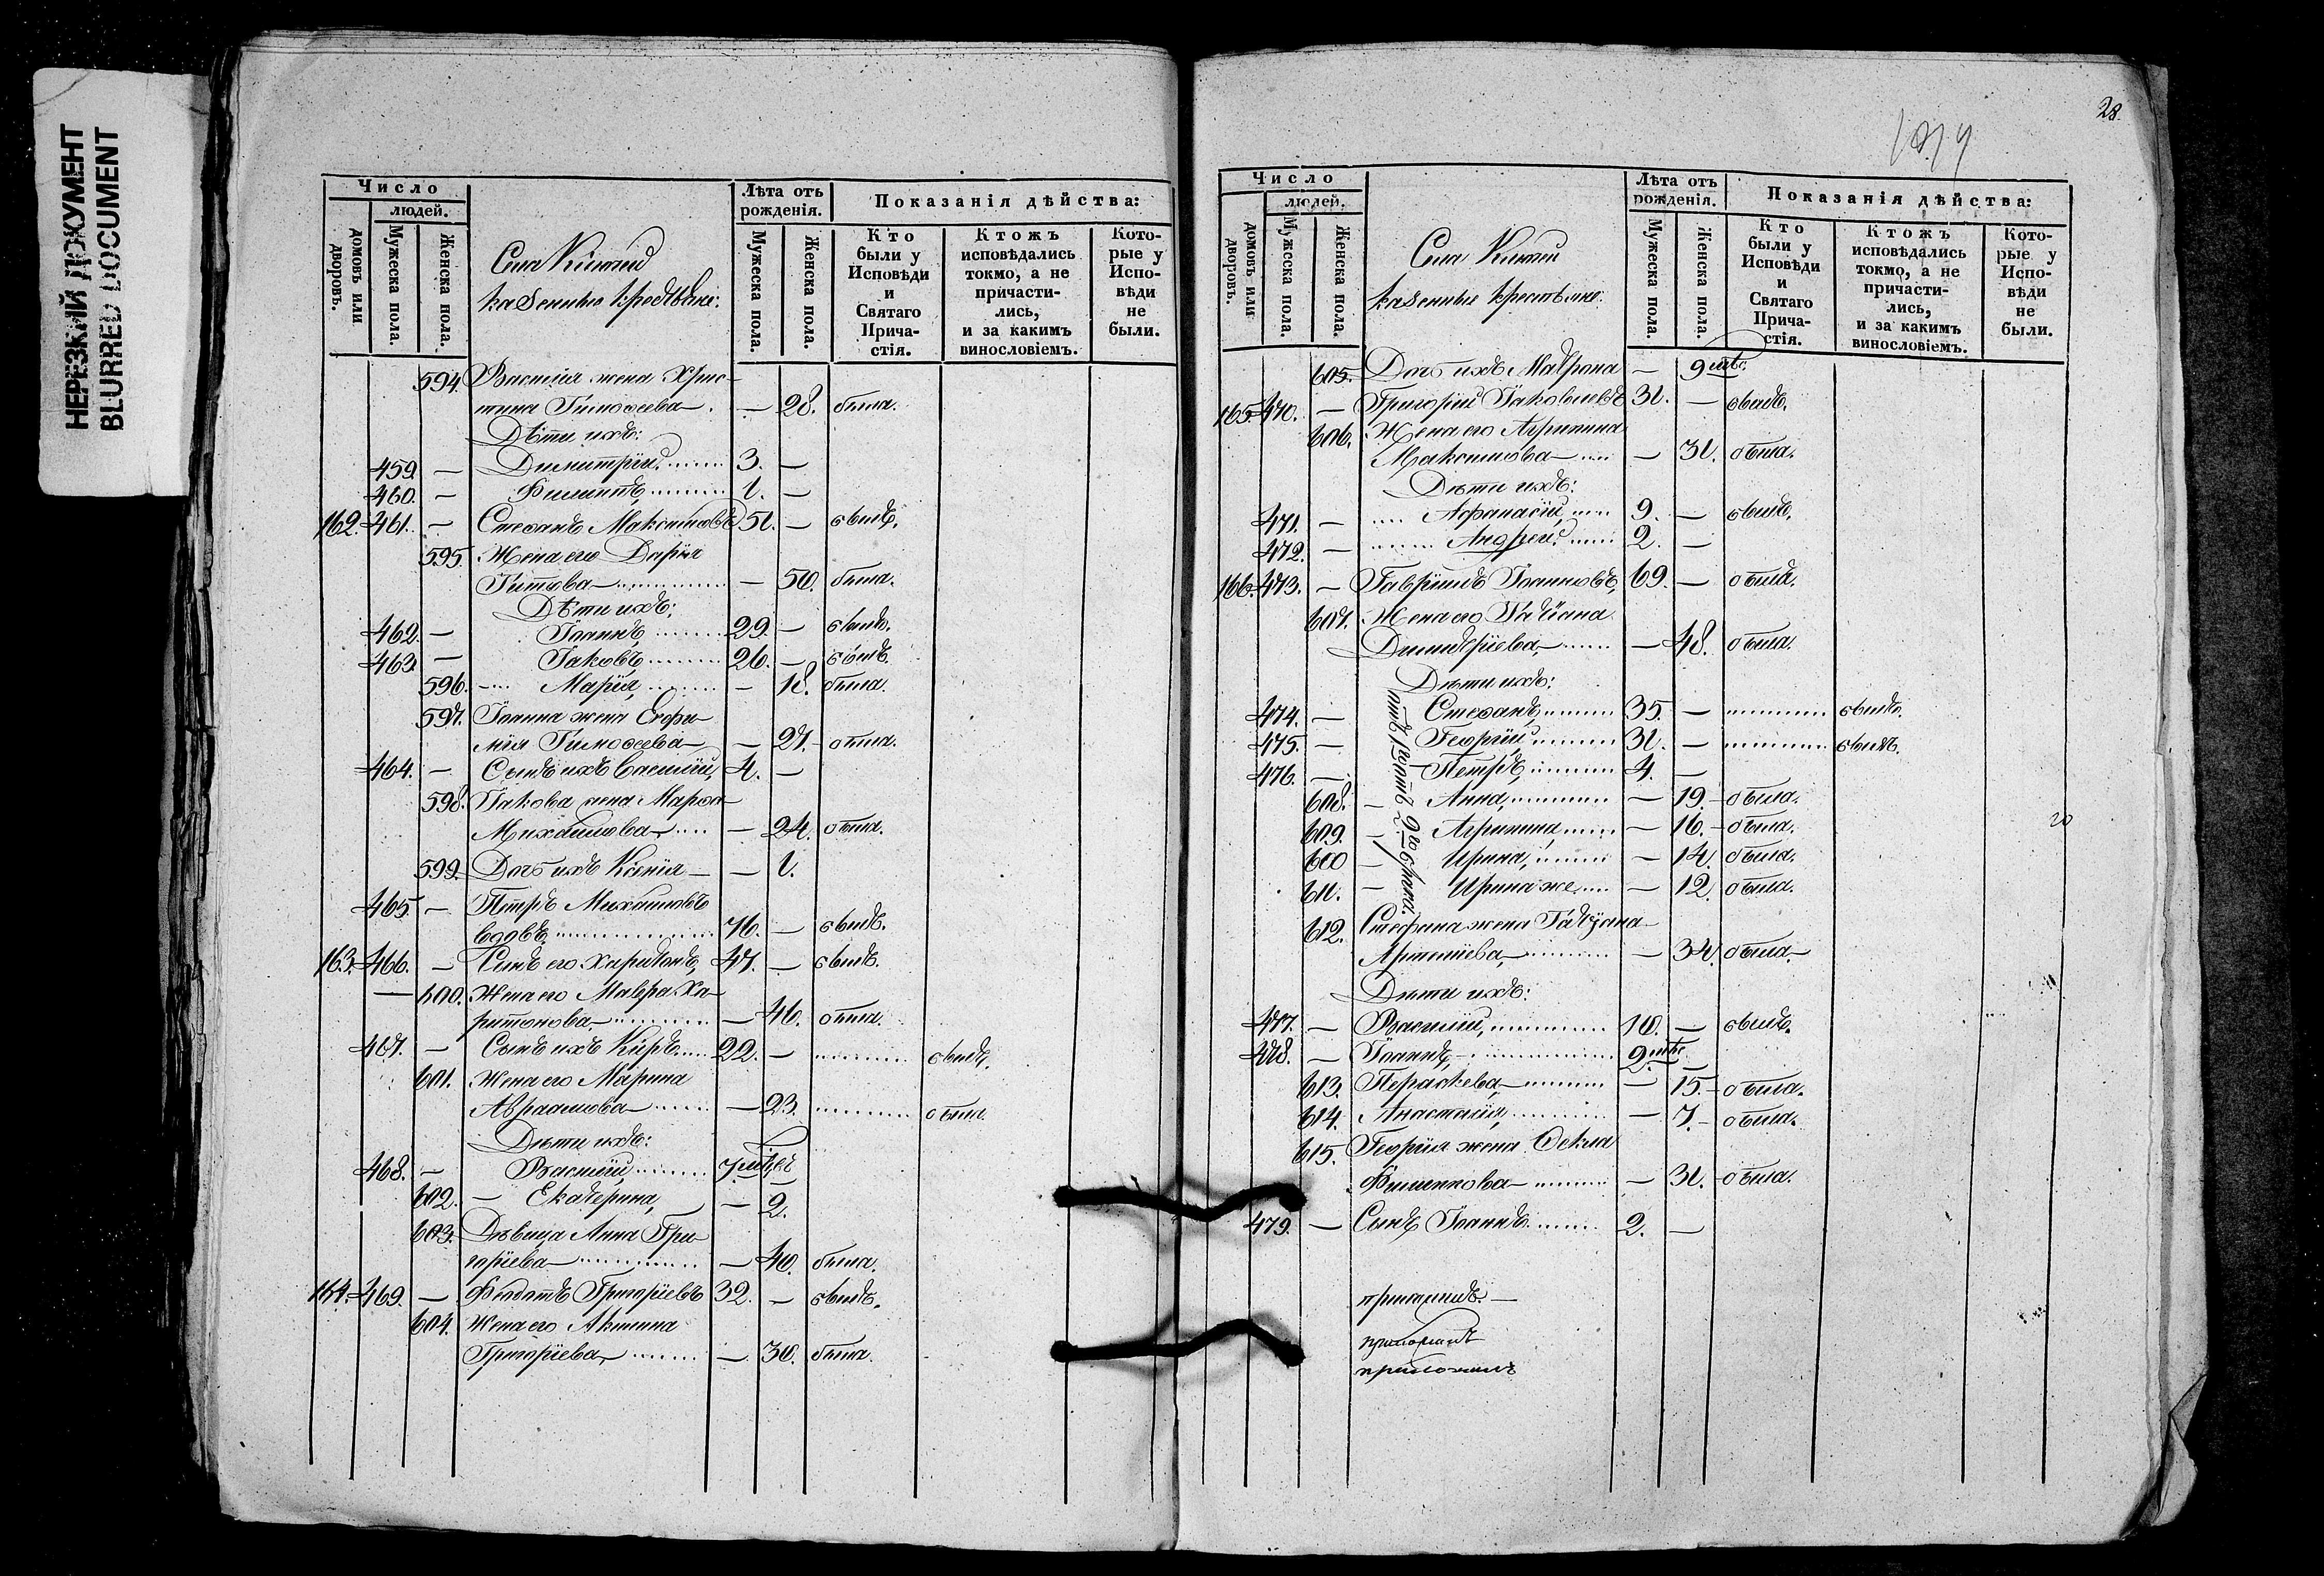 НЕРЕЗКИЙ ДОКУМЕНТ
BLURRED DOCUMENT
Число
людей.
домовъ или дворовъ.
Мужеска пола.
Женска пола.
казенные крестьяне:
Лѣта отъ рожденія.
Мужеска пола.
Женска пола.
Показанія дѣйства:
Кто были у Исповѣди и Святаго Прича-стія.
Ктожъ исповѣдались токмо, а не причасти-лись, и за какимъ винословіемъ.
Кото-рые у Испо-вѣди не были.
594. Василія жена Хрис-
тина Тимоѳеева — 28. была.
Дѣти ихъ:
459. — Димитрій 3. —
460. — Филиппъ 1. —
162. 461. — Стефанъ Максимовъ 51. — былъ.
595. Жена его Дарія
Титова — 50. была.
Дѣти ихъ:
462. — Іоаннъ 29. — былъ.
463. — Іаковъ 26. — былъ.
596. Марія, — 18. была.
597. Іоанна жена Евфи-
мія Тимоѳеева — 27. была.
464. — Сынъ ихъ Василій, 4. —
598. Іакова жена Марфа
Михайлова — 24. была.
599. Дочь ихъ Ксенія — 1.
465. — Петръ Михайловъ
вдовъ 76. — былъ.
163. 466. — Сынъ его Харитонъ, 47. — былъ.
— 600. Жена его Мавра Ха-
ритонова — 46. была.
467. — Сынъ ихъ Киръ 22. — былъ.
601. Жена его Марина
Авраамова — 23. была.
Дѣти ихъ:
468. — Василій, 7 мѣс.
602. — Екатерина, — 2.
603. Дѣвица Анна Гри-
горіева — 40. была.
164. 469. — Ѳедотъ Григоріевъ 32. — былъ.
604. Жена его Акилина
Григоріева, — 30. была.
28.
Число
людей.
домовъ или дворовъ.
Мужеска пола.
Женска пола.
казенные крестьяне.
Лѣта отъ рожденія.
Мужеска пола.
Женска пола.
Показанія дѣйства:
Кто были у Исповѣди и Святаго Прича-стія.
Ктожъ исповѣдались токмо, а не причасти-лись, и за какимъ винословіемъ.
Кото-рые у Испо-вѣди не были.
605. Дочь ихъ Матрона — 9 мѣс.
165. 470. — Григорій Іаковлевъ 31. — былъ.
606. Жена его Агрипина
Максимова — 31. была.
Дѣти ихъ:
471. — Афанасій, 9. — былъ.
472. — Андрей 2. —
166. 473. — Гавріилъ Іоанновъ, 69. — былъ.
607. Жена его Татіана
Димитріева, — 48. была.
Дѣти ихъ:
474. — Стефанъ, 35. — былъ.
475. — Георгій, 31. — былъ.
476. — Петръ, 4. —
608. — Анна, — 19. была.
609. — Агрипина, — 16. была.
600 — Ирина, — 14. была.
611. — Ирина же — 12. была.
612. Стефана жена Татіана
— 34. была.
Дѣти ихъ:
477. — Василій, 10. — былъ.
478. — Іоаннъ, 9 мѣс. —
613. Параскева, — 15. была.
614. Анастасія, — 7. была.
615. Георгія жена Ѳекла
Филиппова — 31. была.
479. — Сынъ Іоаннъ 2. —
20